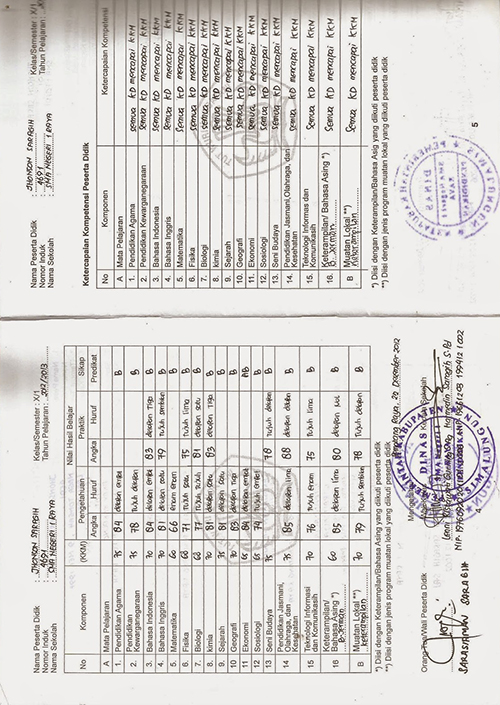 Nama Peserta Didik : JHONSON SARAGIH Kelas/Semester : X/1
Nomor Induk : 4691 Tahun Pelajaran : 2012/2013
Nama Sekolah : SMA NEGERI 1 RAYA
No Komponen (KKM) Nilai Hasil Belajar
Pengetahuan Praktik Sikap
Angka Huruf Angka Huruf Predikat
A Mata Pelajaran
1. Pendidikan Agama 75 84 delapan empat B
2. Pendidikan Kewarganegaraan 70 78 tujuh delapan B
3. Bahasa Indonesia 70 84 delapan empat 83 delapan tiga B
4. Bahasa Inggris 70 81 delapan satu 79 tujuh sembilan B
5. Matematika 60 66 enam enam B
6. Fisika 68 71 tujuh satu 75 tujuh lima B
7. Biologi 68 77 tujuh tujuh 81 delapan satu B
8. kimia 70 81 delapan satu 83 delapan tiga B
9. Sejarah 75 81 delapan satu B
10 Geografi 70 83 delapan tiga B
11 Ekonomi 65 84 delapan empat AB
12 Sosiologi 65 74 tujuh empat B
13 Seni Budaya 75 78 tujuh delapan B
14 Pendidikan Jasmani, Olahraga, dan Kesehatan 75 85 delapan lima 88 delapan delapan B
15 Teknologi Informasi dan Komunikasi 70 76 tujuh enam 75 tujuh lima B
16 Keterampilan/ Bahasa Asing *) 60 85 delapan lima 80 delapan B
B Muatan Lokal **) 70 79 tujuh sembilan 78 tujuh delapan B
keterampilan
*) Diisi dengan Keterampilan/Bahasa Asing yang diikuti peserta didik
**) Diisi dengan jenis program muatan lokal yang diikuti peserta didik
Raya, 20 Desember 2012
Orang Tua/Wali Peserta Didik
SARASIAMAN SARAGIH
DINAS
SIMALUNGUN
4
Nama Peserta Didik : JHONSON SARAGIH Kelas/Semester : X/1
Nomor Induk : 4691 Tahun Pelajaran :
Nama Sekolah : SMA NEGERI 1 RAYA
Ketercapaian Kompetensi Peserta Didik
No Komponen Ketercapaian Kompetensi
A Mata Pelajaran
1. Pendidikan Agama semua KD mencapai KKM
2. Pendidikan Kewarganegaraan semua KD mencapai KKM
3. Bahasa Indonesia semua KD mencapai KKM
4. Bahasa Inggris semua KD mencapai KKM
5. Matematika semua KD mencapai KKM
6. Fisika semua KD mencapai KKM
7. Biologi semua KD mencapai KKM
8. kimia semua KD mencapai KKM
9. Sejarah semua KD mencapai KKM
10. Geografi semua KD mencapai KKM
11. Ekonomi semua KD mencapai KKM
12. Sosiologi semua KD mencapai KKM
13. Seni Budaya semua KD mencapai KKM
14. Pendidikan Jasmani,Olahraga, dan Kesehatan semua KD mencapai KKM
15. Teknologi Informasi dan Komunikasi semua KD mencapai KKM
16. Keterampilan/ Bahasa Asing *) semua KD mencapai KKM
B. Jerman
B Muatan Lokal **) semua KD mencapai KKM
keterampilan
*) Diisi dengan Keterampilan/Bahasa Asig yang diikuti peserta didik
**) Diisi dengan jenis program muatan lokal yang diikuti peserta didik
DINAS
PENDIDIKAN
5